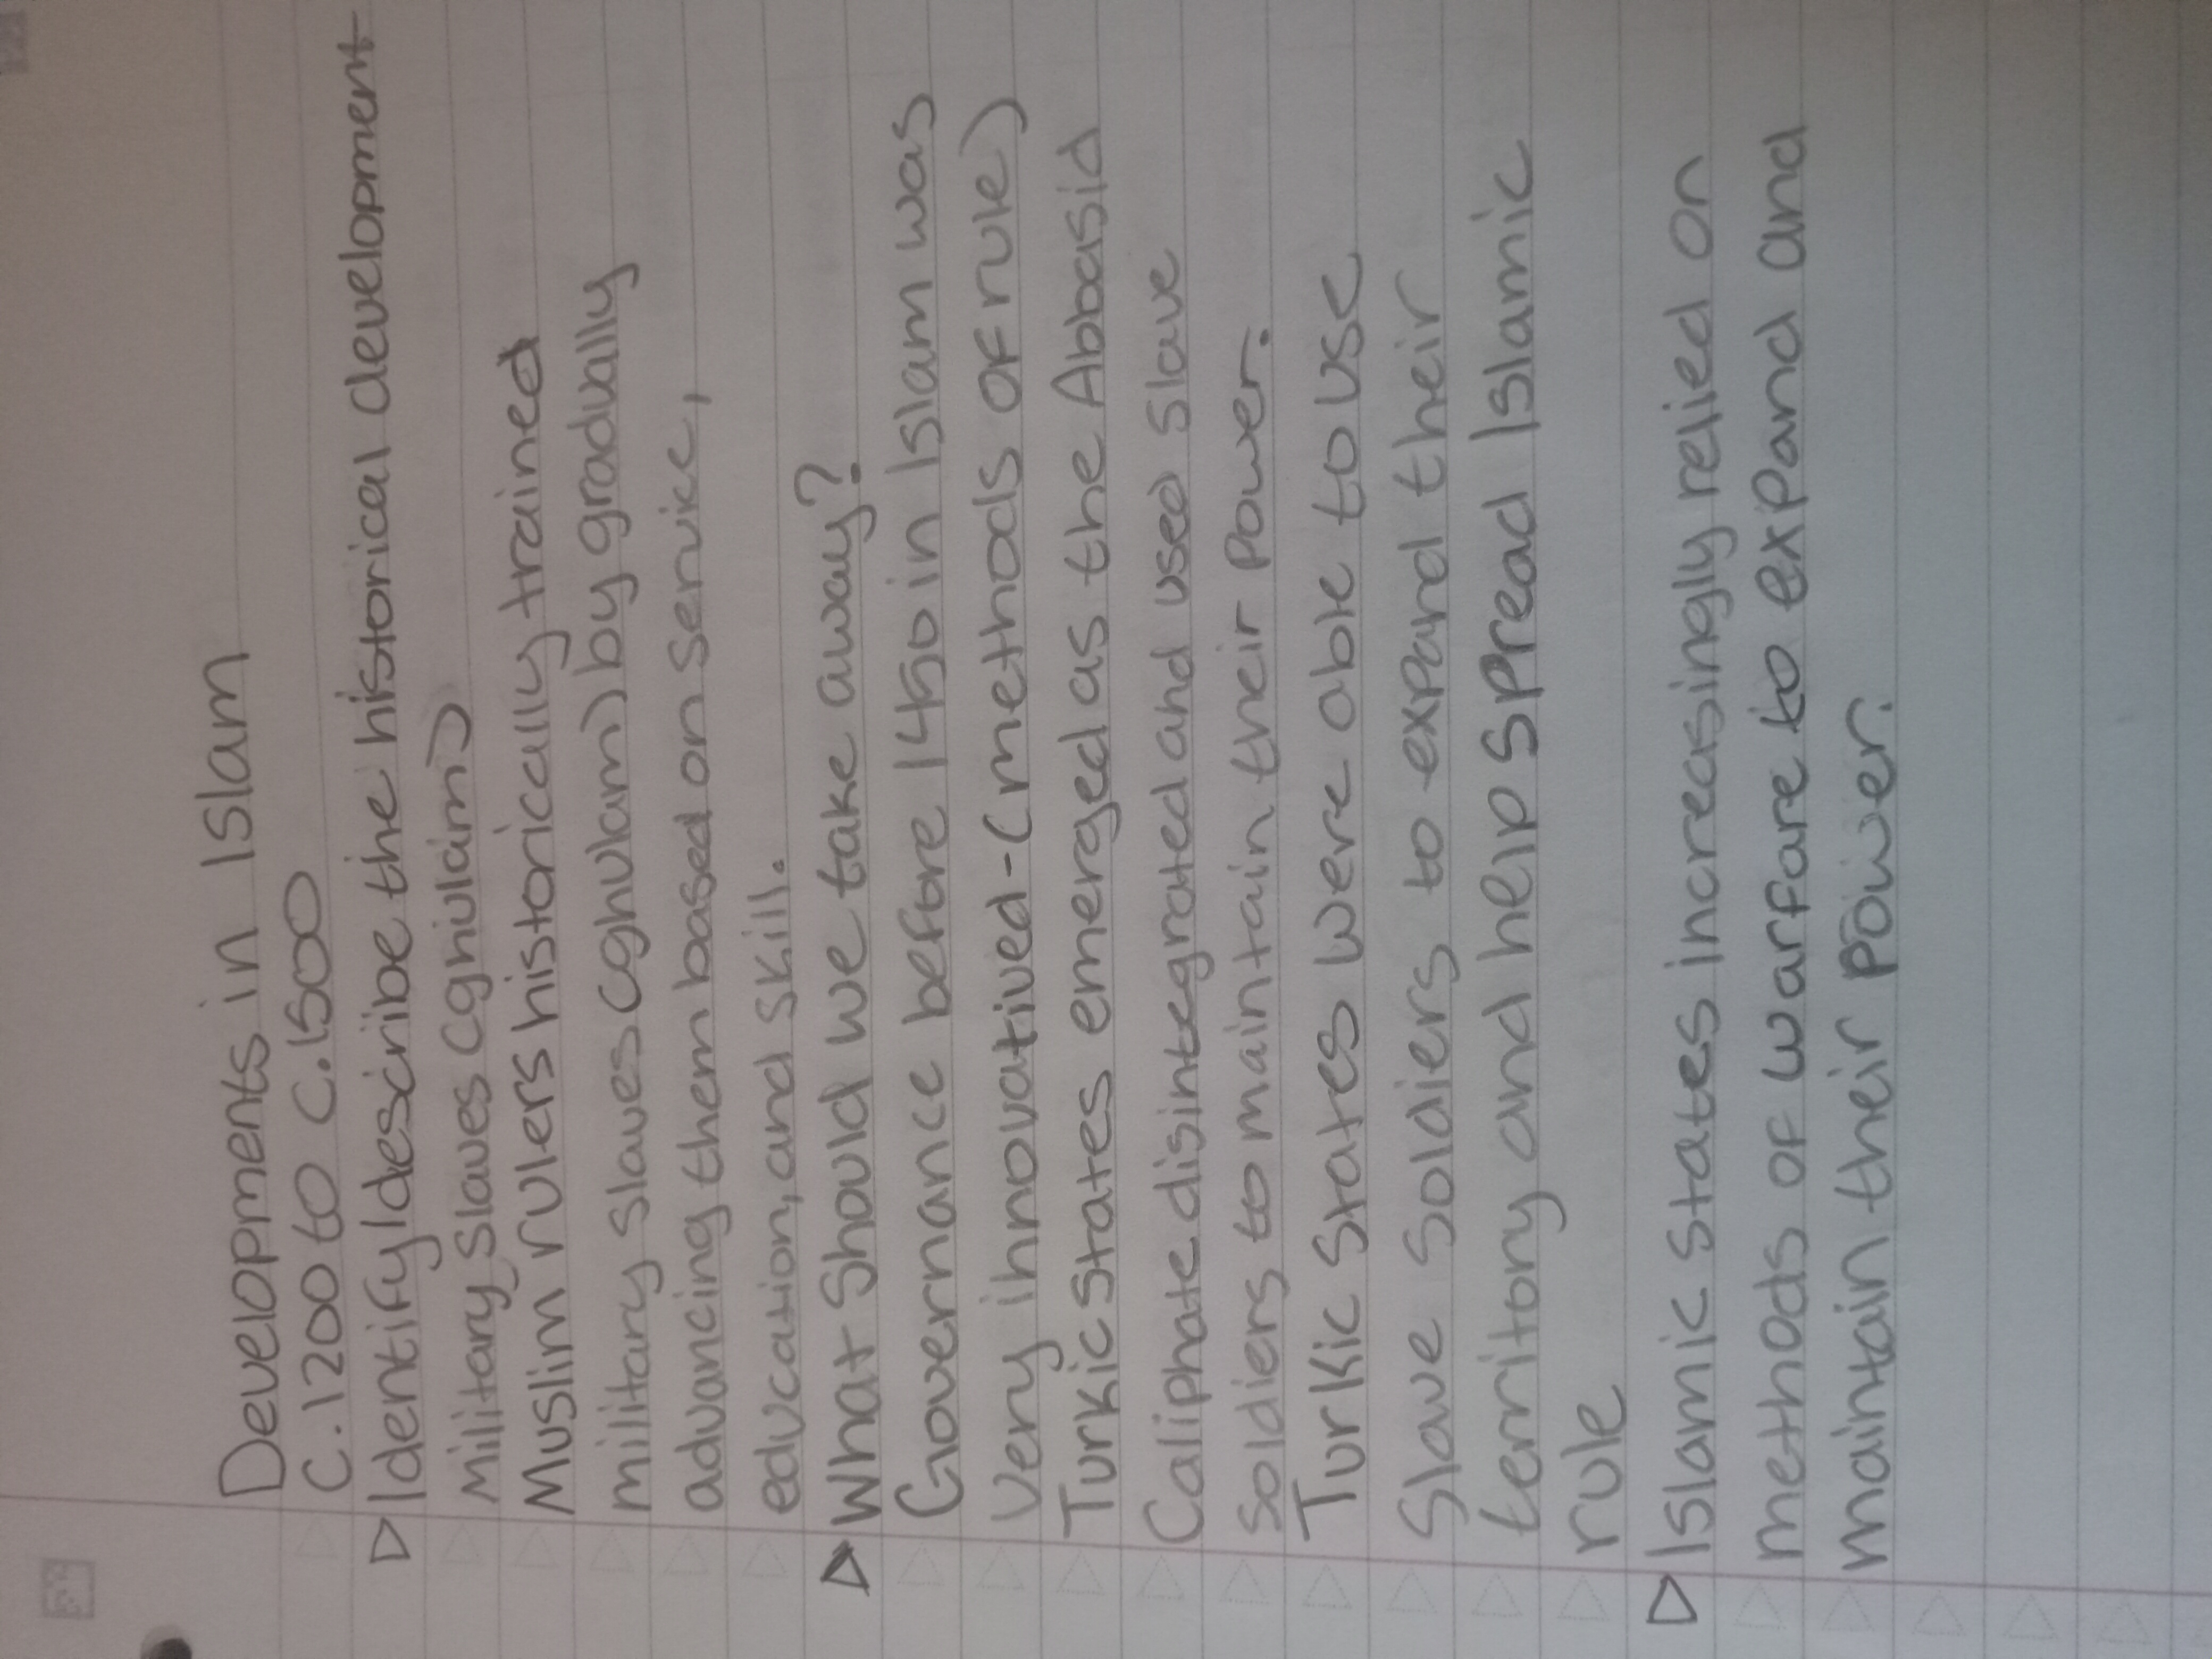 Developments in Islam
C.1200 to C.1500
Identify/describe the historical development
Military Slaves (ghulam)
Muslim rulers historically trained
military slaves (ghulam) by gradually
advancing them based on service,
education, and skill.
What should we take away?
Governance before 1450 in Islam was
very innovatived-(methods of rule)
Turkic States emerged as the Abbasid
Caliphate disintegrated and used slave
soldiers to maintain their power.
Turkic States were able to use
slave soldiers to expand their
territory and help spread Islamic
rule
Islamic states increasingly relied on
methods of warfare to expand and
maintain their power.